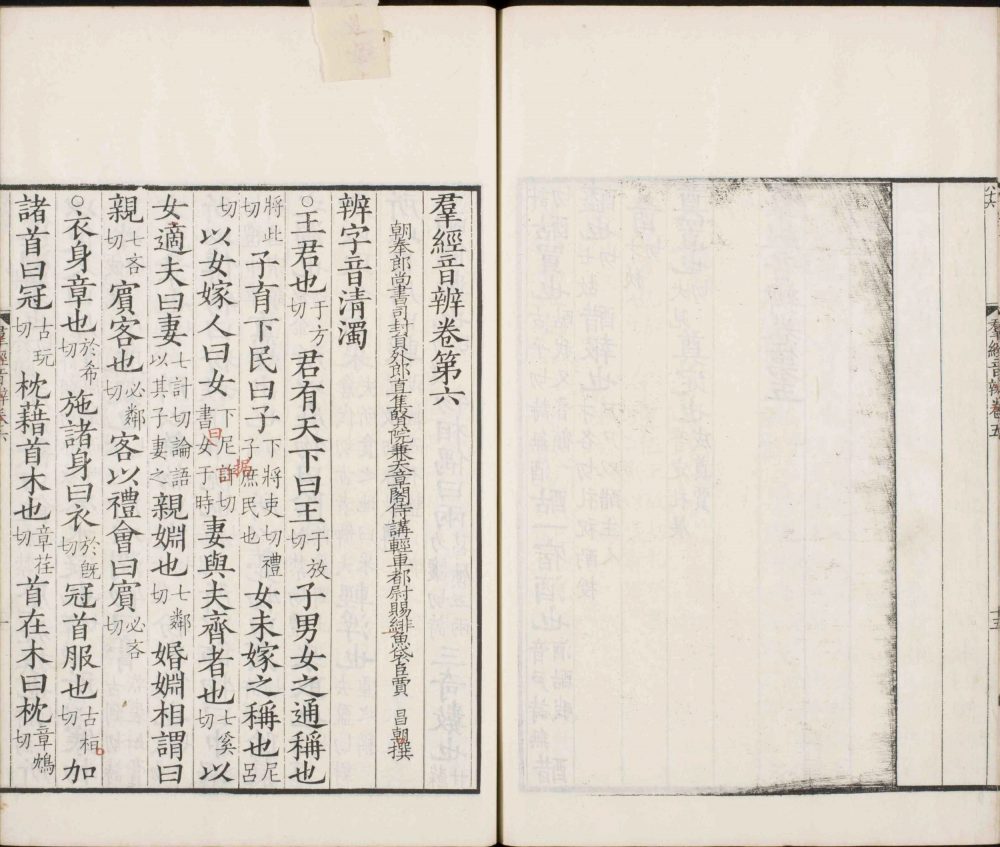 羣經音辨卷五
羣經音辨卷第六
朝奉郎尚書司封員外郎直集賢院兼天章閣侍講輕車都尉賜緋魚袋臣賈 昌朝撰
辨字音清濁
○王君也于方切君有天下曰王于放切子男女之通稱也
將此切子育下民曰子下將吏切禮子庶民也女未嫁之稱也尼呂
切以女嫁人曰女下尼據切書曰女于時妻與夫齊者也七奚切以
女適夫曰妻七計切論語以其子妻之親婣也七鄰切婚婣相謂曰
親七吝切賓客也必鄰切客以禮會曰賓必吝切
○衣身章也於希切施諸身曰衣於旣切冠首服也古桓切加
諸首曰冠古玩切枕藉首木也章荏切首在木曰枕章鴆切
羣經音辨卷六
一